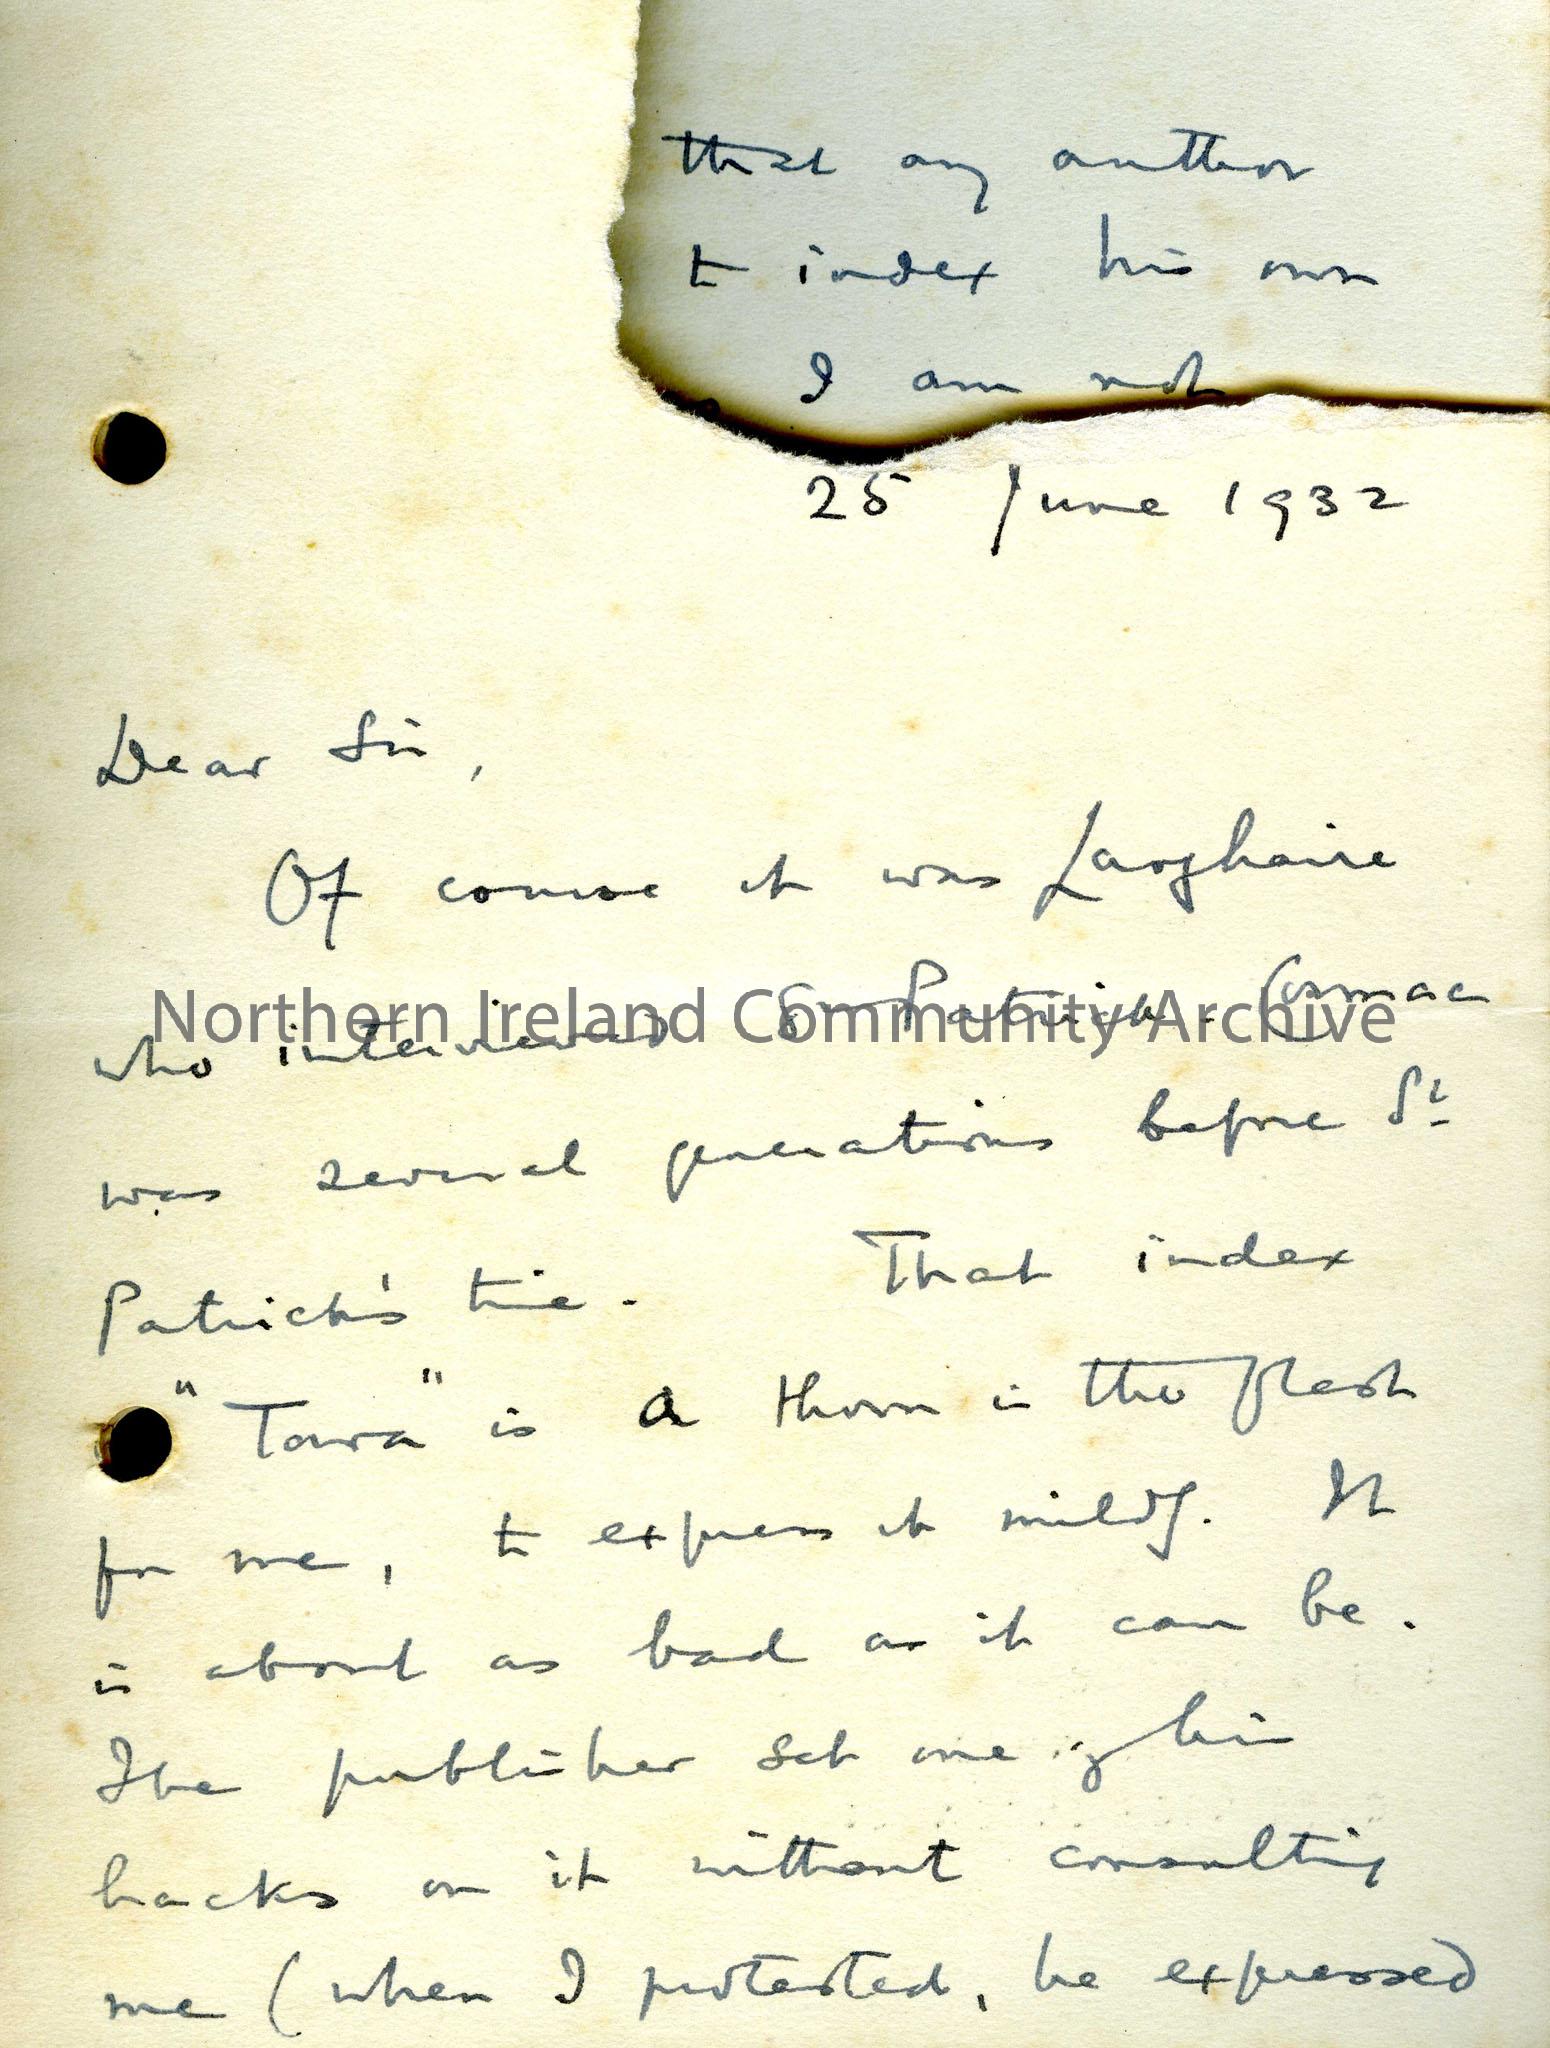 that any author
to index his own
I am not
25 June 1932
Dear Sir,
Of course it was Laoghaire
who interviewed St Patrick. Cormac
Northern Ireland Community Archive
was several generations before St
Patrick's time. That index
"Tara" is a thorn in the flesh
for me, to express it mildly. It
is about as bad as it can be.
The publisher set one of his
hacks on it without consulting
me (when I protested, he expressed